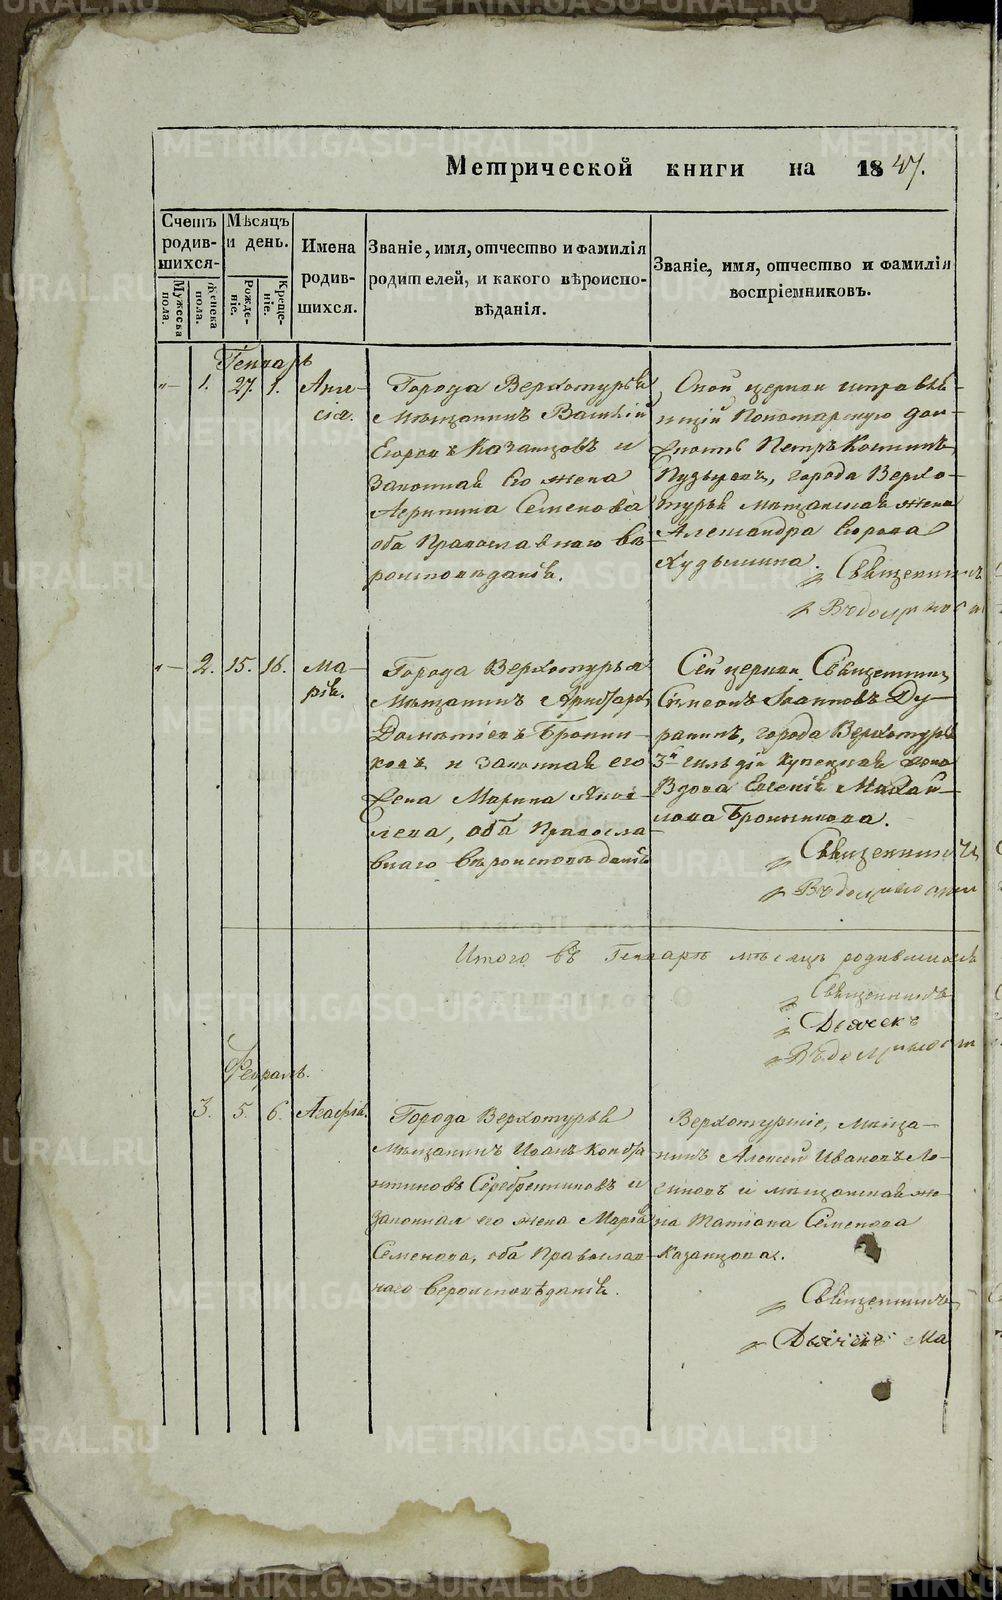 METRIKI.GASO-URAL.RU
Метрической книги на 1847.
Счетъ родив-шихся
Мужеска пола.
Женска пола.
Мѣсяцъ и день.
Рожде-ніе.
Креще-ніе.
Имена родив-шихся.
Званіе, имя, отчество и фамилія родителей, и какого вѣроиспо-вѣданія.
Званіе, имя, отчество и фамилія воспріемниковъ.
Генварь
"— 1. 27. 1.
Города Верхотурья
Мѣщанинъ Василій
Егоровъ Казанцовъ и
Законная его жена
Агрипина Семенова
оба Православнаго вѣ-
роисповѣданія.
Оной церкви исправля-
ющій Пономарскую дол-
жность Петръ Косминъ
города Верхо-
турья мѣщанская жена
Александра Егорова
Худышина.
Священникъ
"— 2. 15. 16.
Ма-
рія.
Города Верхотурья
Мѣщанинъ
Дометіевъ Бронни-
ковъ и Законная его
жена Марина Яков-
лева, оба Правосла-
внаго вѣроисповѣданія
Сей церкви Священникъ
Симеонъ Іоанновъ
города Верхотурья
3й гильдіи купецкая жена
Вдова Евгенія Михай-
лова Бронникова.
Священникъ
Итого въ Генварѣ мѣсяцѣ родившихся
Священникъ
Дьячекъ
Февраль.
3. 5. 6. Агафія.
Города Верхотурья
Мѣщанинъ Иванъ Кондра-
тиновъ Серебренниковъ и
Законная его жена Марѳа
Семенова, оба Православ-
наго вероисповѣданія.
Верхотурскіе, мѣща-
нинъ Алексей Ивановъ Ло-
гиновъ и мѣщанская же-
на Татіана Семенова
Казанцова.
Священникъ
Дьячекъ Ма